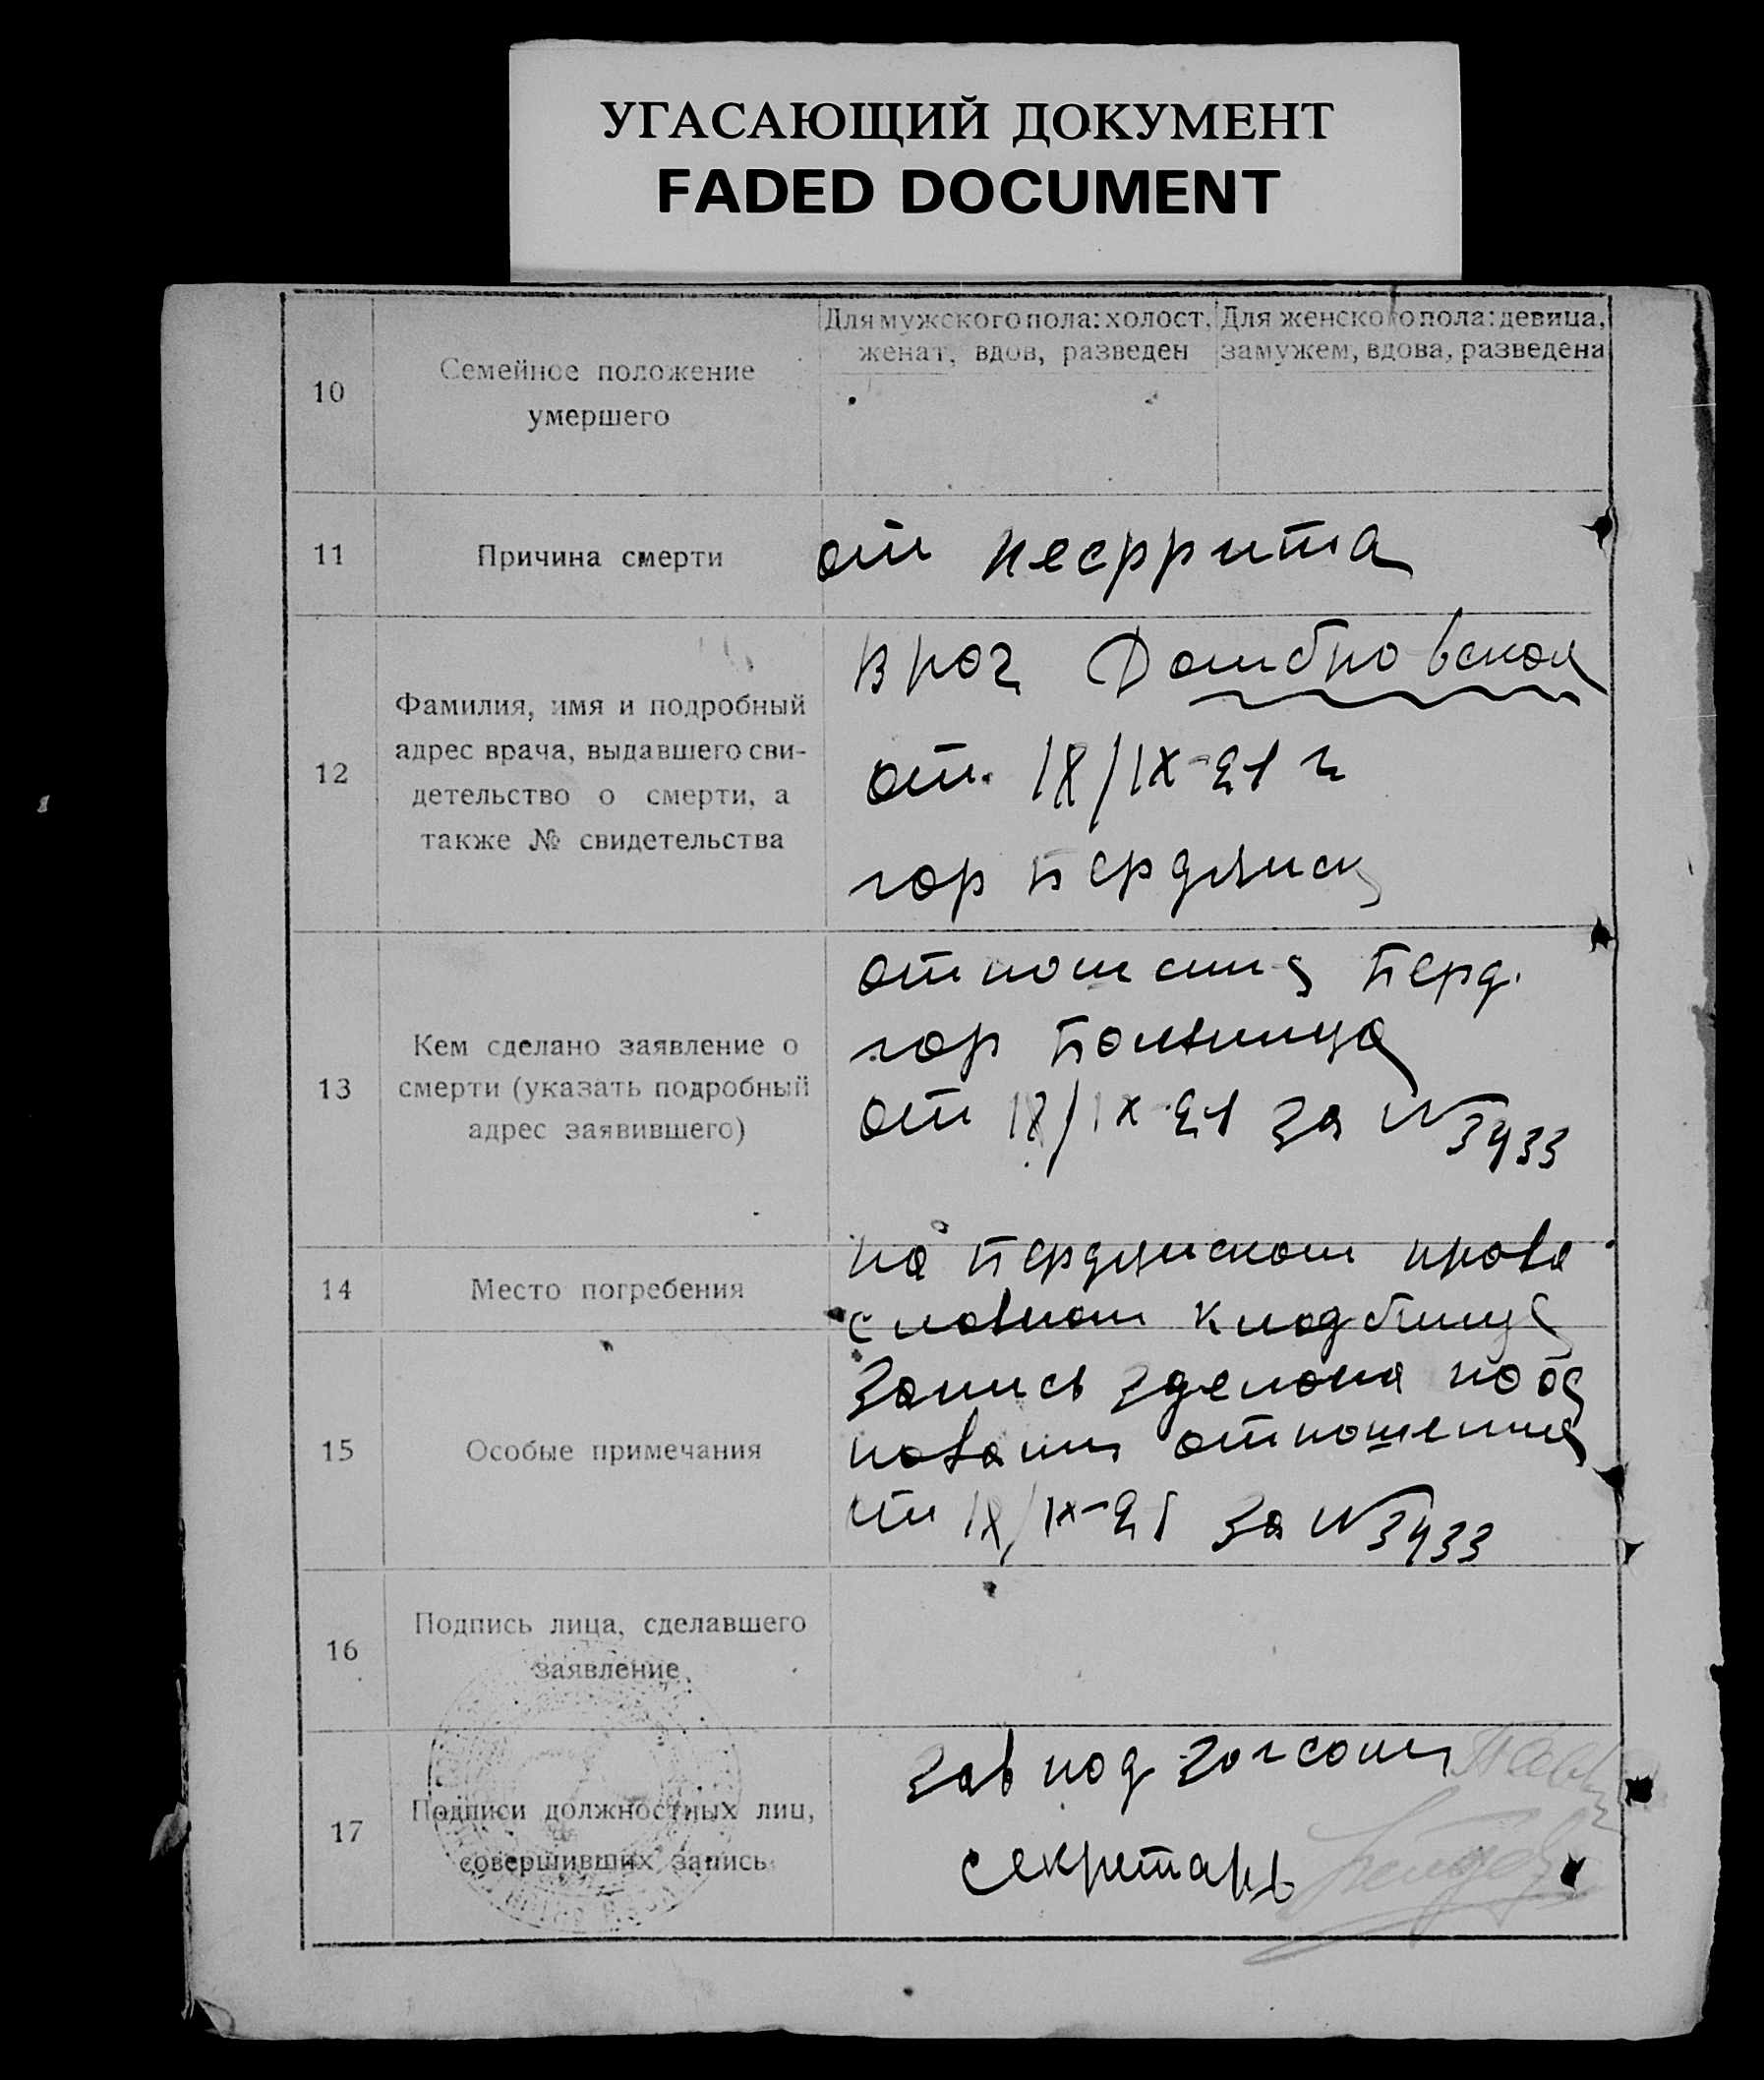 УГАСАЮЩИЙ ДОКУМЕНТ
FADED DOCUMENT
10
Семейное положение
умершего
Для мужского пола: холост,
женат, вдов, разведен
Для женского пола: девица,
замужем, вдова, разведена
11
Причина смерти
от нефрита
12
Фамилия, имя и подробный
адрес врача, выдавшего сви-
детельство о смерти, а
также № свидетельства
врач Домбровская
от 18/IX-21 г
гор Бердянск
13
Кем сделано заявление о
смерти (указать подробный
адрес заявившего)
отношения Берд.
гор Больница
от 18/IX-21 за № 3433
14
Место погребения
на Бердянском право
славном кладбище
15
Особые примечания
Запись зделана на ос
новании отношения
от 18/IX-21 за № 3433
16
Подпись лица, сделавшего
заявление
17
Подписи должностных лиц,
совершивших запись
зав под загсом
секретарь